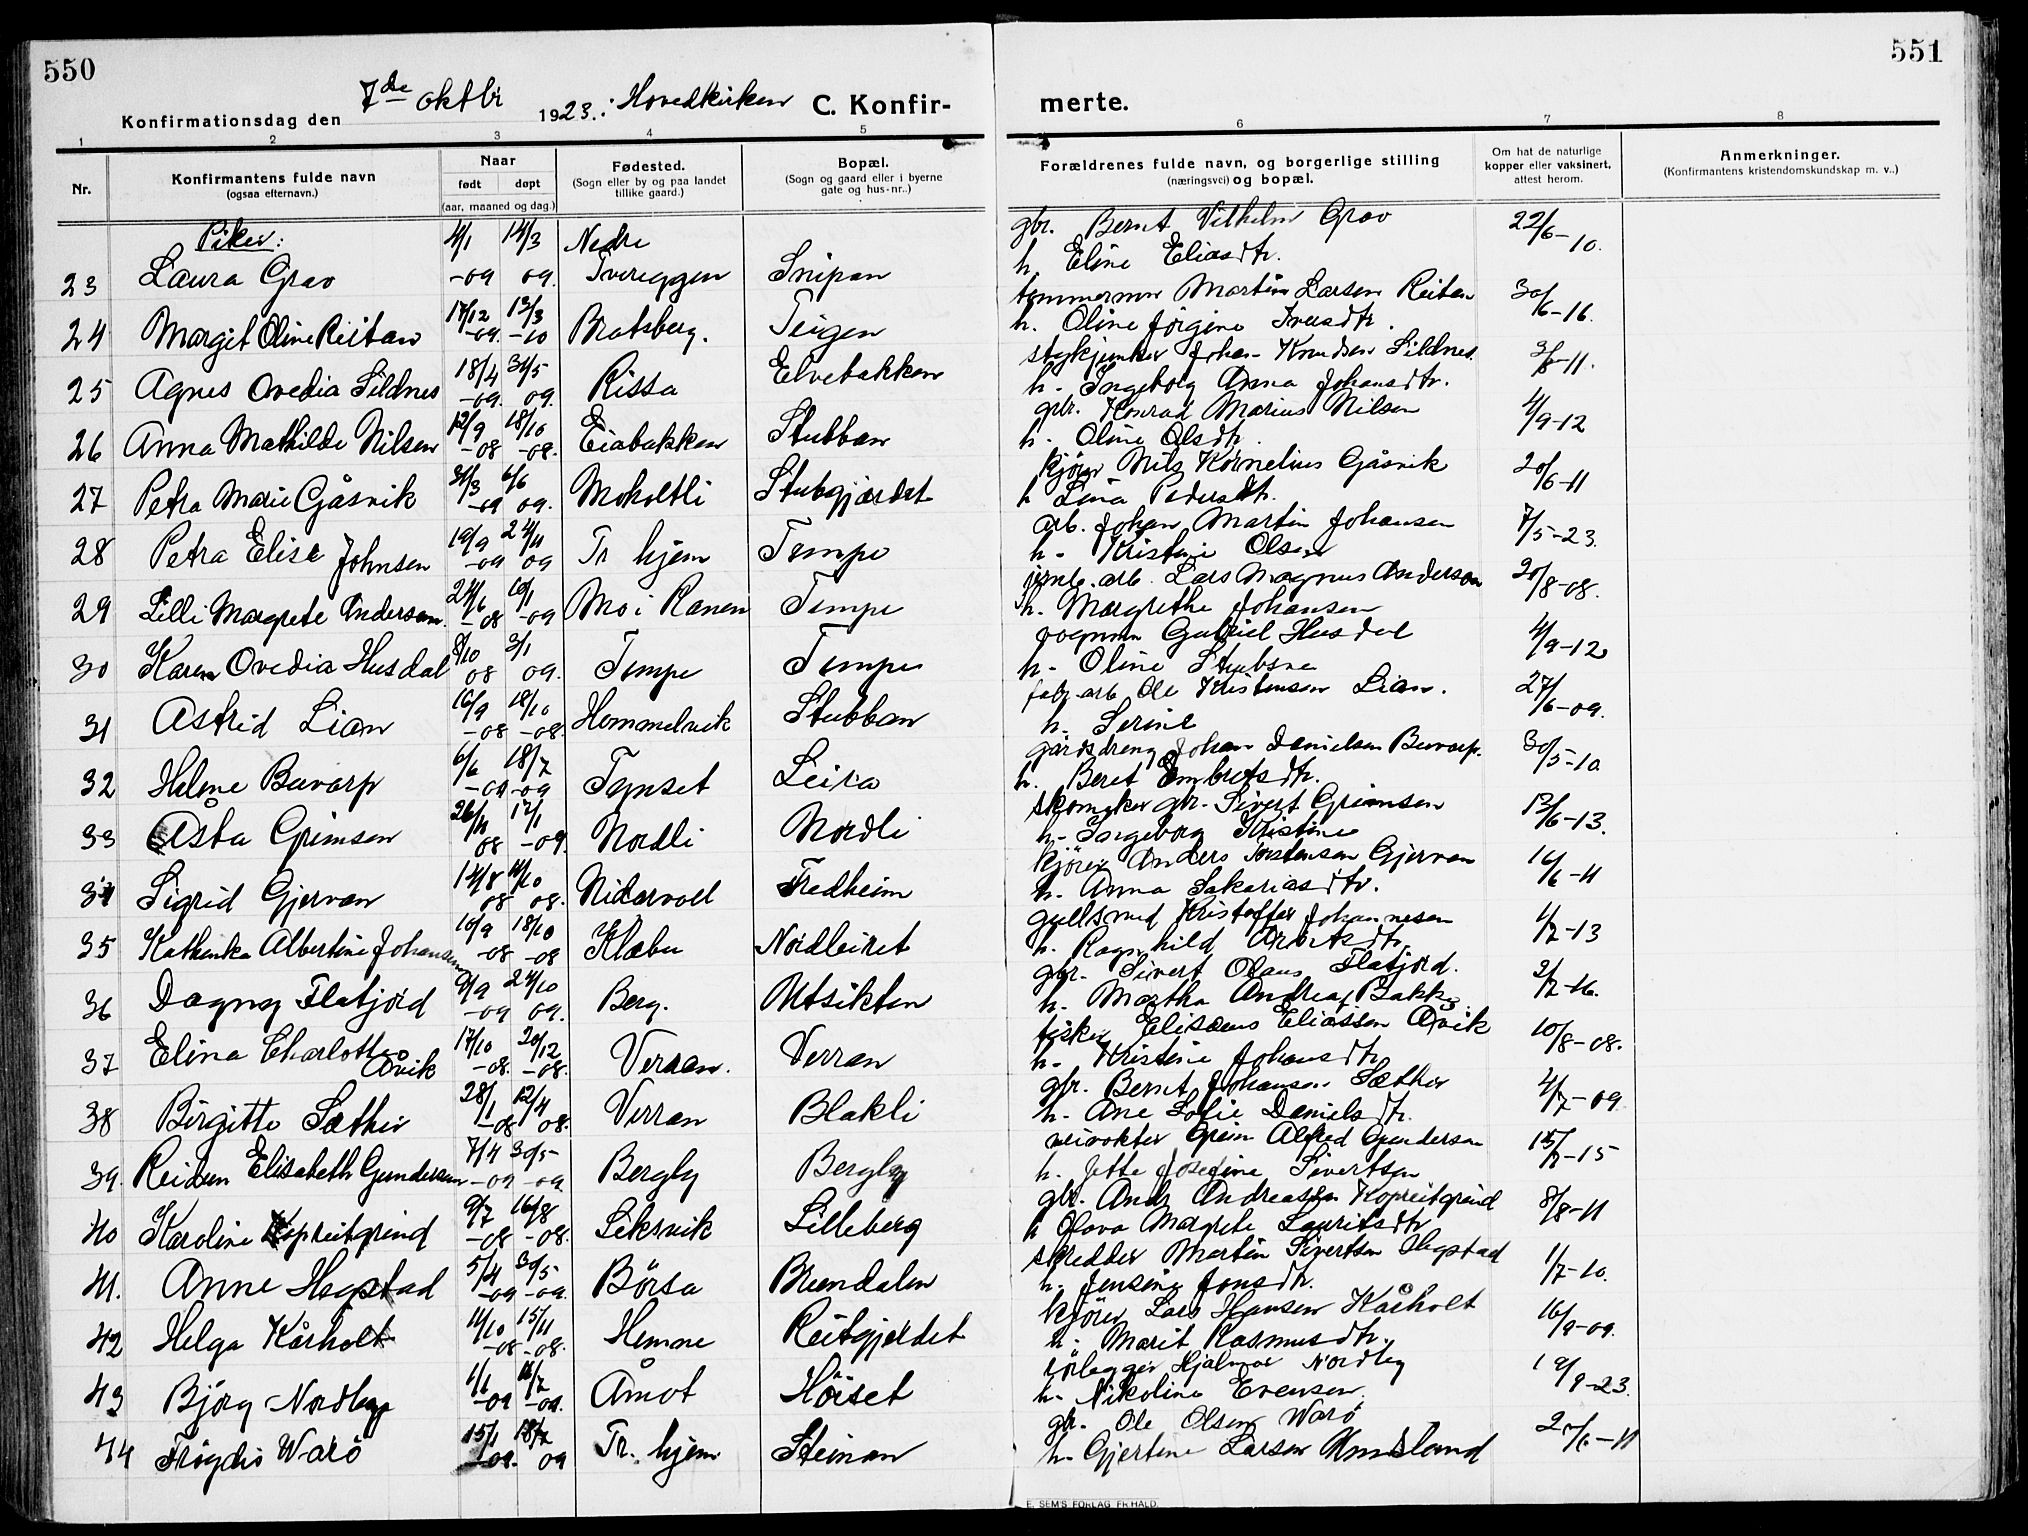 550
551
7de oktbr 1923. : Hovedkirken
Konfirmationsdag den
C. Konfir-
merte.
1 2 3 4 5 6 7 8
Nr.
Konfirmantens fulde navn
(ogsaa efternavn.)
Naar
født døpt
(aar, maaned og dag.)
Fødested.
(Sogn eller by og paa landet
tillike gaard.)
Bopæl.
(Sogn og gaard eller i byerne
gate og hus-nr..)
Forældrenes fulde navn, og borgerlige stilling
(næringsvei) og bopæl.
Om hat de naturlige
kopper eller vaksinert,
attest herom.
Anmerkninger.
(Konfirmantens kristendomskundskap m. v..)
Piker:
4/1 14/3 Nedre gbr. Bernt Vilhelm Grav 22/6-10.
23 Laura Grav -09 09. Tvereggen Snipan h. Eline Eliasdtr.
17/12 13/3 tømmerm Martin Larsen Reitan 30/6-16.
24 Margit Oline Reitan -09. -10 Bratsberg. Teigen h. Oline Jørgine Iversdtr.
18/4 31/5 stykjunker Johan Knudsen Sildnes 3/8-11.
25 Agnes Ovedia Sildnes -09. 09. Rissa Elvebakken h. Ingeborg Anna Johansdtr.
12/9 18/10 gbr. Konrad Marius Nilsen 4/9-12
26 Anna Mathilde Nilsen -08 -08. Eiabakken Stubban h. Oline Olsdtr.
31/3 6/6 kjører Nils Kornelius Gåsvik 20/6-11
27 Petra Marie Gåsvik -09 09. Moholtli Stubgjærdet h Lina Pedersdtr.
19/9 24/11 arb. Johan Martin Johansen 7/5-23.
28 Petra Elise Johnsen -09 09 Tr hjem Tempe h. Kristine Olsen
24/6 10/1 jernb. arb. Lars Magnus Anderson 20/8-08.
29 Lilli Margrete Anderson. -08 -09 Mo i Ranen Tempe h. Margrethe Johansen
8/10 3/1 vognm Gabriel Husdal 4/9-12
30 Karen Ovedia Husdal 08 09. Tempe Tempe h. Oline Stubsne
16/9 18/10 fabr. arb Ole Kristensen Lian. 27/6-09.
31 Astrid Lian -08 -08. Hommelvik Stubban h. Serine
6/6 18/7 gårdsdreng Johan Danielsen Buvarp. 30/5-10
32 Helene Buvarp -09 -09 Tynset Leira h. Beret Embretsdtr.
26/11 17/1 skomaker gbr. Sivert Grimsen 13/6-13.
33 Åsta Grimsen 08 -09. Nordli Nordli h. Ingeborg Kristine
14/8 11/10 kjører Anders Torstensen Gjervan 16/6-11
34 Sigrid Gjervan 08 08. Nidarvoll Fredheim h. Anna Sakariasdtr.
10/9 18/10 gullsmed Kristoffer Johannesen 1/2-13
35 Kathinka Albertine Johansen -08 -08 Klæbu Nordleiret h. Ragnhild Arntsdtr.
9/9 24/10 gbr. Sivert Olaus Flatjord. 2/2-16.
36 Dagny Flatjord -09 09. Berg. Utsikten h. Martha Andrea Bakk
17/10 20/12 fisker Elisæus Eliassen Åvik 10/8-08.
37 Elina Charlotte Åvik -08. -08. Verran. Verran h. Kristine Johansdtr
28/1 12/4 gbr. Bernt Johansen Sæther 4/7-09
38 Birgitte Sæther -08 08. Verran Blakli h. Ane Sofie Danielsdtr.
7/4 30/5 veivokter Grim Alfred Gundersen 15/7-15
39. Reidun Elisabeth Gundersen -09 -09 Bergly Bergly h. Jette Josefine Sivertsen
9/7 16/8 gbr. Andr Andreassen Kopreitgrind 8/8-11
40 Karoline Kopreitgrind -08 -08. Leksvik Lilleberg h Olava Margrete Lauritsdtr
5/4 30/5 skredder Martin Sivertsen Hegstad 1/7-10.
41. Anne Hegstad -09 -09. Börsa Brendalen h. Jensine Jonsdtr.
11/10 15/11 kjører Lars Hansen Kårholt 16/9-09.
42 Helga Kårholt -08 -08. Hemne Reitgjerdet h. Marit Rasmusdtr.
1/1 11/7 rørlegger Hjalmar Nordby 19/9-23.
43 Björg Nordby -09 -09. Åmot Höiset h. Nikoline Evensen.
15/1 18/7 gbr. Ole Olsen Warö 25/6-11
44 Frøydis Warö -09. 09 Tr. hjem Steinan h. Gjertine Larsen Umsland
E. SEM'S FORLAG FR HALD.